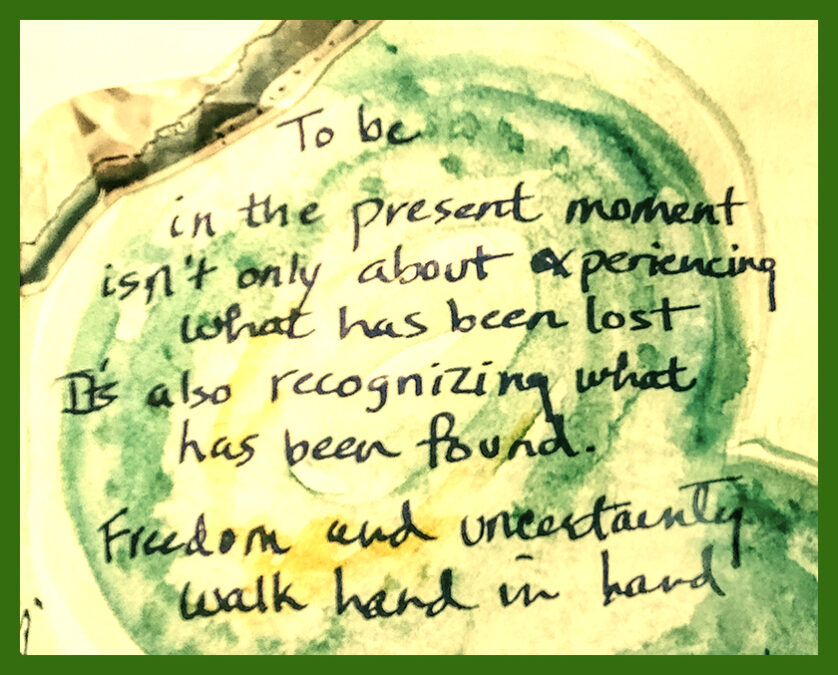 To be
in the present moment
isn't only about experiencing
what has been lost
It's also recognizing what
has been found.
Freedom and uncertainty
walk hand in hand